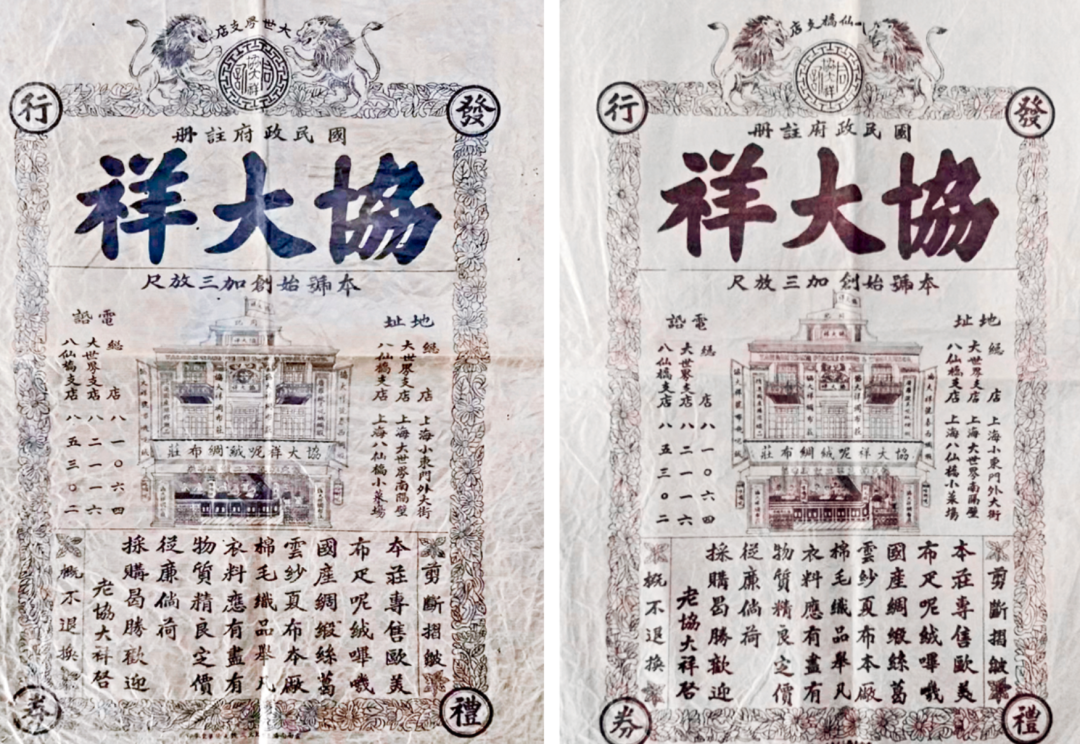 大世界支店
協大祥
發行
國民政府註册
協大祥
本號始創加三放尺
地址
總店 上海小東門外大街
大世界支店 上海大世界南隔壁
八仙橋支店 上海八仙橋小菜場
電話
總店 八一〇六四
大世界支店 八二一一六
八仙橋支店 八五三〇二
協大祥呢絨綢布莊
剪斷摺皺
本莊專售歐美
布疋呢絨嗶嘰
國産綢緞絲葛
雲紗夏布本厰
棉毛織品舉凡
衣料應有盡有
物質精良定價
從廉倘荷
採購曷勝歡迎
老協大祥啓
概不退換
禮券
八仙橋支店
協大祥
發行
國民政府註册
協大祥
本號始創加三放尺
地址
總店 上海小東門外大街
大世界支店 上海大世界南隔壁
八仙橋支店 上海八仙橋小菜場
電話
總店 八一〇六四
大世界支店 八二一一六
八仙橋支店 八五三〇二
協大祥呢絨綢布莊
剪斷摺皺
本莊專售歐美
布疋呢絨嗶嘰
國産綢緞絲葛
雲紗夏布本厰
棉毛織品舉凡
衣料應有盡有
物質精良定價
從廉倘荷
採購曷勝歡迎
老協大祥啓
概不退換
禮券